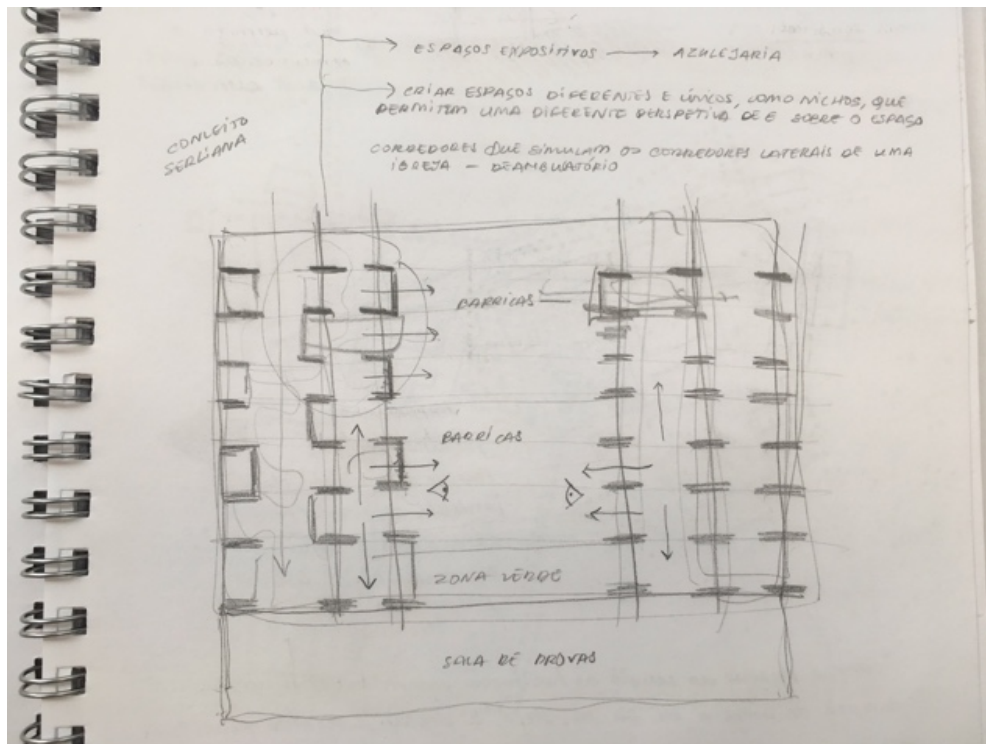 ESPAÇOS EXPOSITIVOS → AZULEJARIA
CRIAR ESPAÇOS DIFERENTES E ÚNICOS, COMO NICHOS, QUE
PERMITEM UMA DIFERENTE PERSPETIVA DE E SOBRE O ESPAÇO
CONCEITO
SERLIANA
CORREDORES QUE SIMULAM OS CORREDORES LATERAIS DE UMA
IGREJA - DEAMBULATÓRIO
BARRICAS
BARRICAS
ZONA VERDE
SALA DE PROVAS